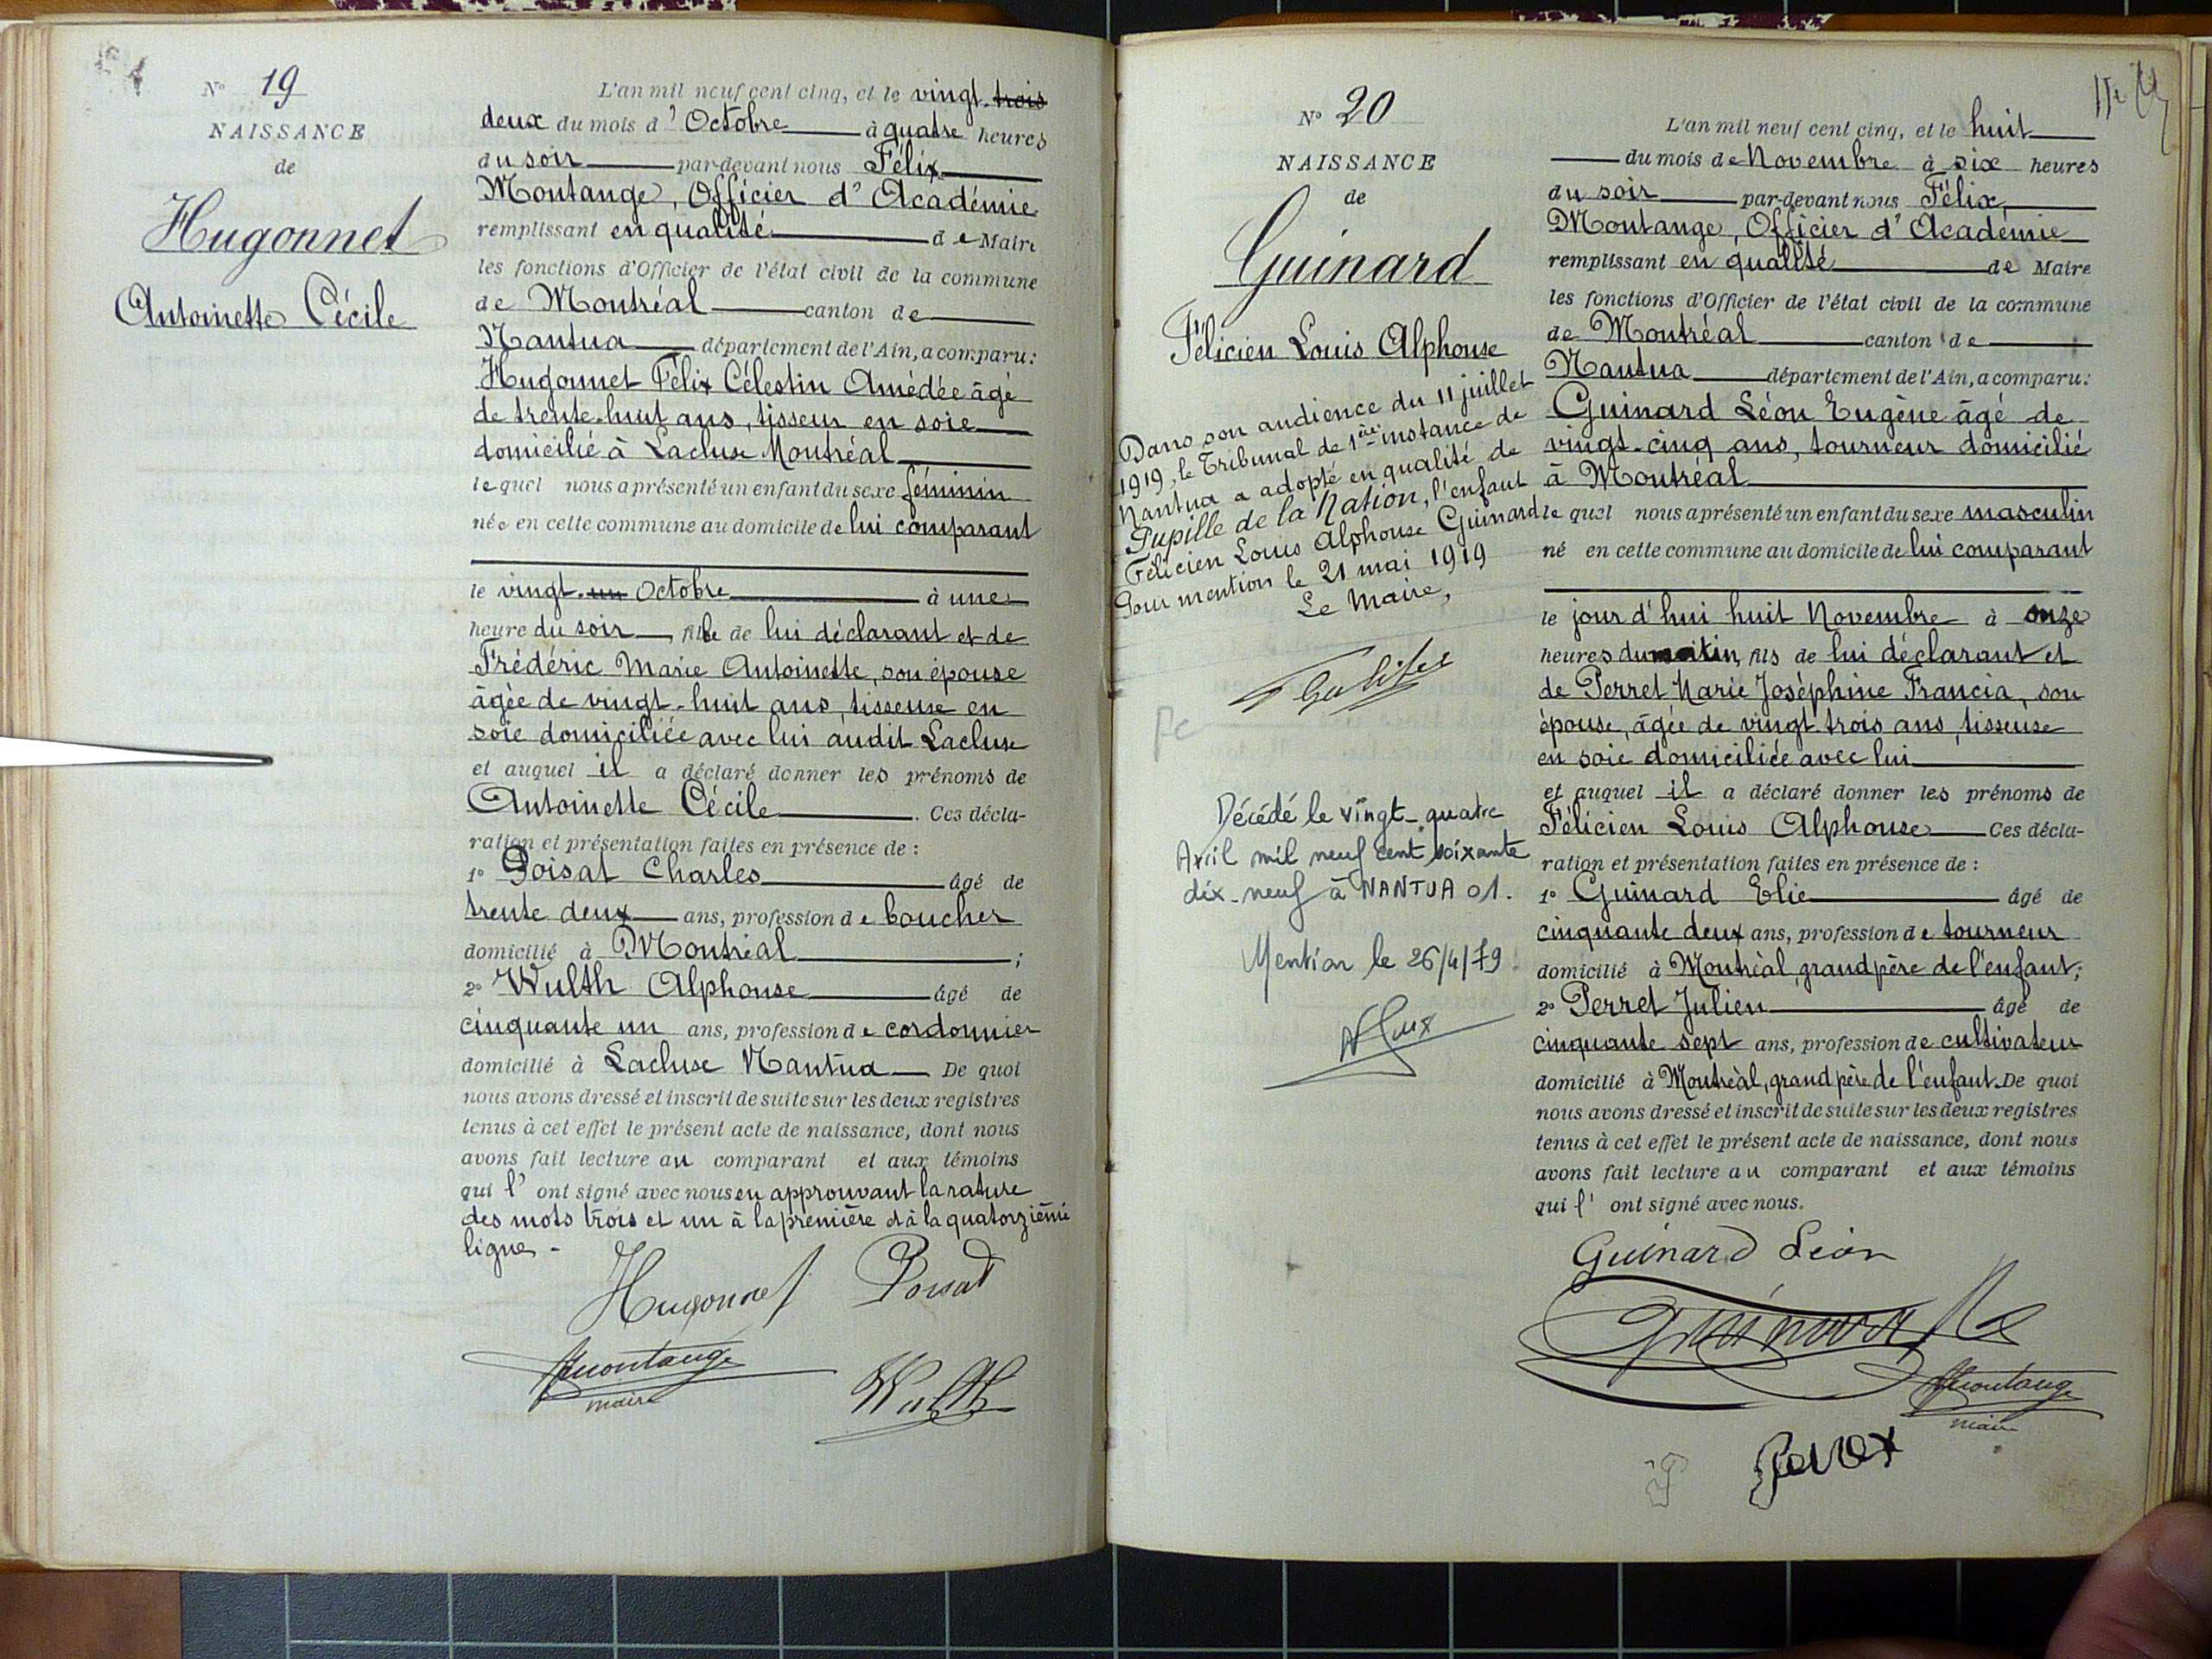 N° 19
NAISSANCE
de
Hugonnet
Antoinette Cécile
L'an mil neuf cent cinq, et le vingt-trois
deux du mois d'Octobre à quatre heures
du soir par-devant nous Félix
Montange, Officier d'Académie
remplissant en qualité de Maire
les fonctions d'Officier de l'état civil de la commune
de Montréal canton de
Nantua département de l'Ain, a comparu:
Hugonnet Félix Célestin Amédée âgé
de trente-huit ans, tisseur en soie
domicilié à Lacluse Montréal
lequel nous a présenté un enfant du sexe féminin
née en cette commune au domicile de lui comparant
le vingt-un Octobre à une
heure du soir, fille de lui déclarant et de
Frédéric Marie Antoinette, son épouse
âgée de vingt-huit ans, tisseuse en
soie domiciliée avec lui audit Lacluse
et auquel il a déclaré donner les prénoms de
Antoinette Cécile. Ces décla-
ration et présentation faites en présence de :
1° Poisat Charles âgé de
trente deux ans, profession de boucher
domicilié à Montréal ;
2° Wulth Alphonse âgé de
cinquante un ans, profession de cordonnier
domicilié à Lacluse Nantua De quoi
nous avons dressé et inscrit de suite sur les deux registres
tenus à cet effet le présent acte de naissance, dont nous
avons fait lecture au comparant et aux témoins
qui l'ont signé avec nous en approuvant la rature
des mots trois et un à la première et à la quatorzième
ligne.-
Hugonnet Poisat
FMontange
maire
Wulth
N° 20
NAISSANCE
de
Guinard
Félicien Louis Alphonse
Dans son audience du 11 juillet
1919, le Tribunal de 1ère instance de
Nantua a adopté en qualité de
Pupille de la Nation, l'enfant
Félicien Louis Alphonse Guinard
Pour mention le 21 mai 1919
Le Maire,
Décédé le vingt-quatre
Avril mil neuf cent soixante
dix-neuf à NANTUA 01.
Mention le 26/4/79.
L'an mil neuf cent cinq, et le huit
du mois de Novembre à six heures
du soir par-devant nous Félix
Montange, Officier d'Académie
remplissant en qualité de Maire
les fonctions d'Officier de l'état civil de la commune
de Montréal canton de
Nantua département de l'Ain, a comparu:
Guinard Léon Eugène âgé de
vingt-cinq ans, tourneur domicilié
à Montréal
lequel nous a présenté un enfant du sexe masculin
né en cette commune au domicile de lui comparant
le jour d'hui huit Novembre à onze
heures du matin, fils de lui déclarant et
de Perret Marie Joséphine Francia, son
épouse, âgée de vingt trois ans, tisseuse
en soie domiciliée avec lui
et auquel il a déclaré donner les prénoms de
Félicien Louis Alphonse Ces décla-
ration et présentation faites en présence de :
1° Guinard Elie âgé de
cinquante deux ans, profession de tourneur
domicilié à Montréal, grand père de l'enfant;
2° Perret Julien âgé de
cinquante sept ans, profession de cultivateur
domicilié à Montréal, grand père de l'enfant. De quoi
nous avons dressé et inscrit de suite sur les deux registres
tenus à cet effet le présent acte de naissance, dont nous
avons fait lecture au comparant et aux témoins
qui l'ont signé avec nous.
Guinard Léon
Guinard
FMontange
maire
Perret